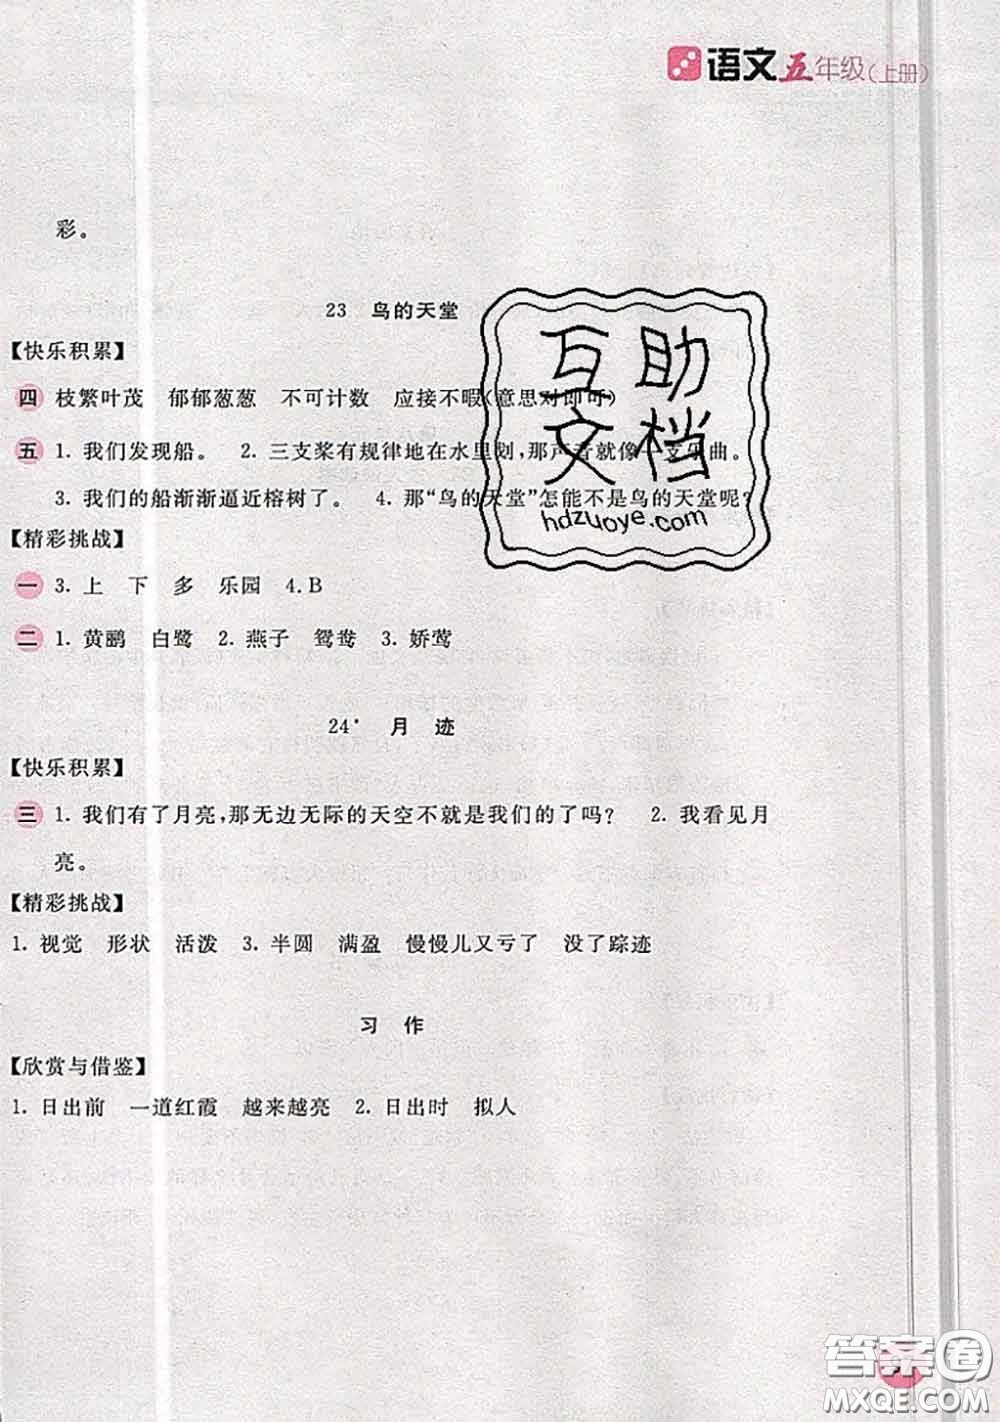 语文五年级(上册)
彩。
23 鸟的天堂
【快乐积累】
四 枝繁叶茂 郁郁葱葱 不可计数 应接不暇(意思对即可)
五 1. 我们发现船。 2. 三支桨有规律地在水里划,那声音就像一支乐曲。
3. 我们的船渐渐逼近榕树了。 4. 那“鸟的天堂”怎能不是鸟的天堂呢?
【精彩挑战】
一 3. 上 下 多 乐园 4.B
二 1. 黄鹂 白鹭 2. 燕子 鸳鸯 3. 娇莺
互助
文档
hdzuoye.com
24* 月迹
【快乐积累】
三 1. 我们有了月亮,那无边无际的天空不就是我们的了吗? 2. 我看见月
亮。
【精彩挑战】
1. 视觉 形状 活泼 3. 半圆 满盈 慢慢儿又亏了 没了踪迹
习作
【欣赏与借鉴】
1. 日出前 一道红霞 越来越亮 2. 日出时 拟人
答案卷
MXQE.COM